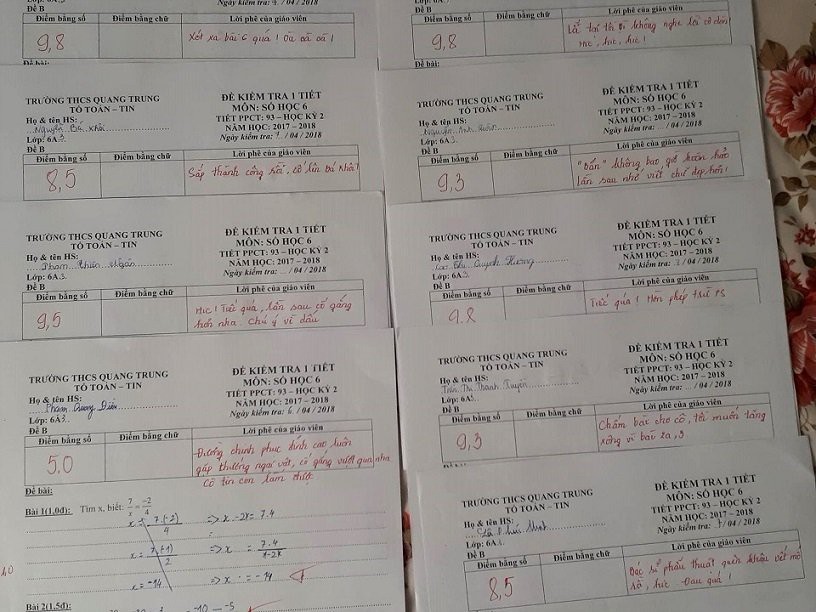 Đề B
Điểm bằng số Điểm bằng chữ Lời phê của giáo viên
9,8 Xót xa bài 6 quá!
Đề bài:
Ngày kiểm tra: /04/2018
Đề B
Điểm bằng số Điểm bằng chữ Lời phê của giáo viên
9,8
hic, hic, hic!
Đề bài:
TRƯỜNG THCS QUANG TRUNG
TỔ TOÁN – TIN
ĐỀ KIỂM TRA 1 TIẾT
MÔN: SỐ HỌC 6
TIẾT PPCT: 93 – HỌC KỲ 2
NĂM HỌC: 2017 – 2018
Ngày kiểm tra: /04/2018
Họ & tên HS:
Nguyễn Bá Khải
Lớp: 6A3
Đề B
Điểm bằng số Điểm bằng chữ Lời phê của giáo viên
8,5 Sắp thành công rồi, cố lên Bá Khải!
TRƯỜNG THCS QUANG TRUNG
TỔ TOÁN – TIN
ĐỀ KIỂM TRA 1 TIẾT
MÔN: SỐ HỌC 6
TIẾT PPCT: 93 – HỌC KỲ 2
NĂM HỌC: 2017 – 2018
Ngày kiểm tra: /04/2018
Họ & tên HS:
Nguyễn Anh
Lớp: 6A3
Đề B
Điểm bằng số Điểm bằng chữ Lời phê của giáo viên
9,3 không bao giờ hoàn hảo
lần sau nhớ viết chữ đẹp hơn!
TRƯỜNG THCS QUANG TRUNG
TỔ TOÁN – TIN
ĐỀ KIỂM TRA 1 TIẾT
MÔN: SỐ HỌC 6
TIẾT PPCT: 93 – HỌC KỲ 2
NĂM HỌC: 2017 – 2018
Ngày kiểm tra: .../04/2018
Họ & tên HS:
Phạm Ngân
Lớp: 6A3
Đề B
Điểm bằng số Điểm bằng chữ Lời phê của giáo viên
9,5 Hic! Tiếc quá, lần sau cố gắng
hơn nha. Chú ý về dấu
TRƯỜNG THCS QUANG TRUNG
TỔ TOÁN – TIN
ĐỀ KIỂM TRA 1 TIẾT
MÔN: SỐ HỌC 6
TIẾT PPCT: 93 – HỌC KỲ 2
NĂM HỌC: 2017 – 2018
Ngày kiểm tra: /04/2018
Họ & tên HS:
Quỳnh Hương
Lớp: 6A3
Đề B
Điểm bằng số Điểm bằng chữ Lời phê của giáo viên
9,8 Tiếc quá! phép trừ PS
TRƯỜNG THCS QUANG TRUNG
TỔ TOÁN – TIN
ĐỀ KIỂM TRA 1 TIẾT
MÔN: SỐ HỌC 6
TIẾT PPCT: 93 – HỌC KỲ 2
NĂM HỌC: 2017 – 2018
Ngày kiểm tra: 6/04/2018
Họ & tên HS:
Phạm
Lớp: 6A3
Đề B
Điểm bằng số Điểm bằng chữ Lời phê của giáo viên
5,0 Đường chinh phục đỉnh cao luôn
gặp chướng ngại vật, cố gắng vượt qua nha
Cô tin con làm được
Đề bài:
Bài 1(1,0đ): Tìm x, biết: 7/x = -2/4
=> x.-2 = 7.4
x = -14 => x = -14
Bài 2(1,5đ):
TRƯỜNG THCS QUANG TRUNG
TỔ TOÁN – TIN
ĐỀ KIỂM TRA 1 TIẾT
MÔN: SỐ HỌC 6
TIẾT PPCT: 93 – HỌC KỲ 2
NĂM HỌC: 2017 – 2018
Ngày kiểm tra: .../04/2018
Họ & tên HS:
Trần Thị Thanh
Lớp: 6A3
Đề B
Điểm bằng số Điểm bằng chữ Lời phê của giáo viên
9,3 Chấm bài cho cô, tôi muốn tăng
xông vì bài 2a, 3
TRƯỜNG THCS QUANG TRUNG
TỔ TOÁN – TIN
ĐỀ KIỂM TRA 1 TIẾT
MÔN: SỐ HỌC 6
TIẾT PPCT: 93 – HỌC KỲ 2
NĂM HỌC: 2017 – 2018
Ngày kiểm tra: /04/2018
Họ & tên HS:
Lớp: 6A
Đề B
Điểm bằng số Điểm bằng chữ Lời phê của giáo viên
8,5 Bác sĩ phẫu thuật quên khâu vết mổ
hic Đau quá!